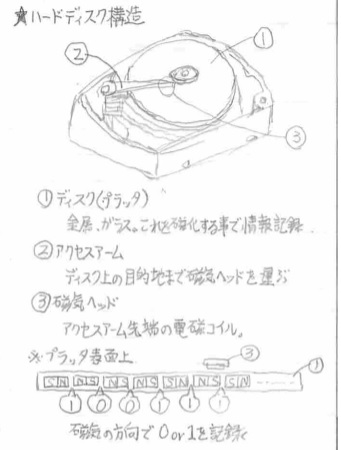 ★ハードディスク構造
①
②
③
①ディスク(プラッタ)
金属、ガラス。これを磁化する事で情報記録
②アクセスアーム
ディスク上の目的地まで磁気ヘッドを運ぶ
③磁気ヘッド
アクセスアーム先端の電磁コイル。
※プラッタ表面上
③
①
S N N S N S N S S N N S S N
1 0 0 1 1 1
磁気の方向で0 or 1を記録く